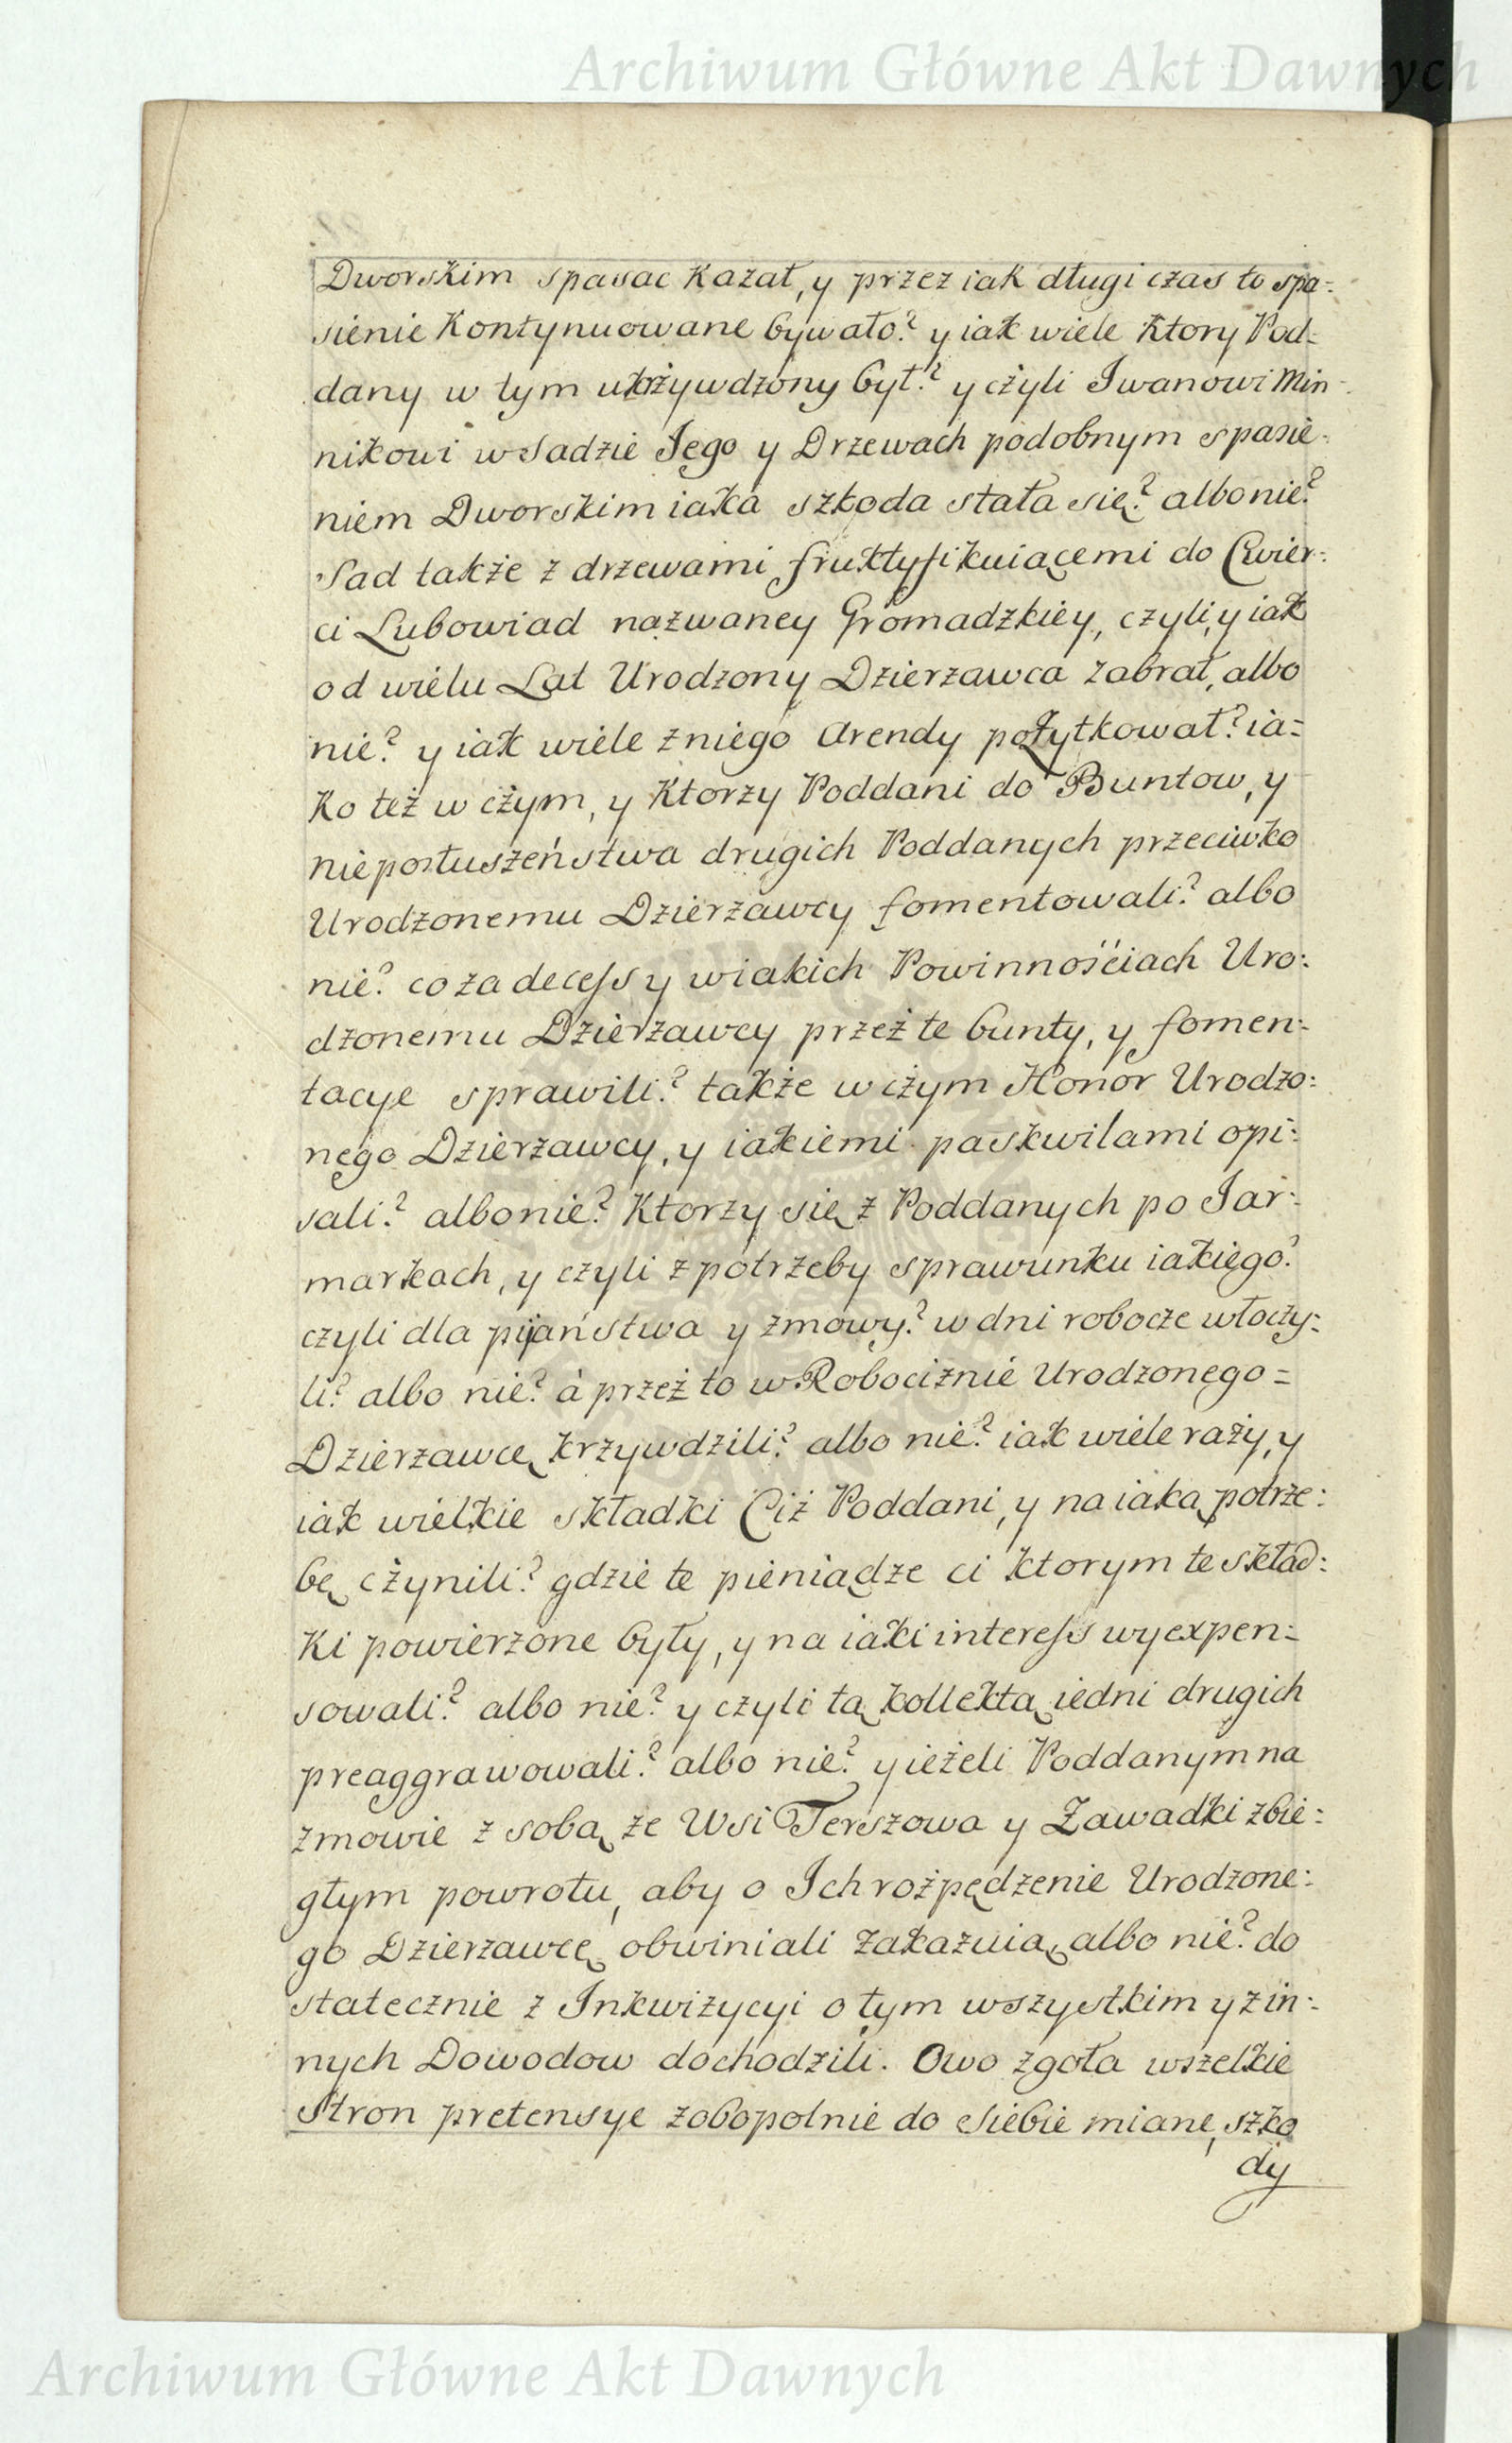 Archiwum Główne Akt Dawnych
Dworskim spasac kazał, y przez iak długi czas to spa=
sienie kontynuowane bywało? y iak wiele ktory Pod=
dany w tym ukrzywdzony był? y czyli Iwanowi Min=
nikowi w Sadzie Jego y Drzewach podobnym spasie=
niem Dworskim iaka szkoda stała się? albo nie?
Sad także z drzewami fruktyfikuiącemi do Cwier=
ci Lubowiad nazwaney Gromadzkiey, czyli, y iak
od wielu Lat Urodzony Dzierzawca zabrał, albo
nie? y iak wiele z niego Arendy pożytkował? ia=
ko też w czym, y ktorzy Poddani do Buntow, y
nieposłuszeństwa drugich Poddanych przeciwko
Urodzonemu Dzierzawcy fomentowali? albo
nie? co za decess y w iakich Powinnościach Uro=
dzonemu Dzierzawcy przez te bunty, y fomen=
tacye sprawili? także w czym Honor Urodzo=
nego Dzierzawcy, y iakiemi paskwilami opi=
sali? albo nie? Ktorzy się z Poddanych po Jar=
markach, y czyli z potrzeby sprawunku iakiego?
czyli dla pijaństwa y zmowy? w dni robocze włoczy=
li? albo nie? à przez to w Robociznie Urodzonego=
Dzierzawcę krzywdzili? albo nie? iak wiele razy, y
iak wielkie składki Ciż Poddani, y na iaką potrze=
bę czynili? gdzie te pieniądze ci ktorym te skład=
ki powierzone były, y na iaki interess wyexpen=
sowali? albo nie? y czyli tą kollektą iedni drugich
preaggrawowali? albo nie? y ieżeli Poddanym na
zmowie z sobą ze Wsi Terszowa y Zawadki zbie=
głym powrotu, aby o Ich rozpędzenie Urodzone=
go Dzierzawcę obwiniali zakazuią albo nie? do
statecznie z Inkwizycyi o tym wszystkim y z in=
nych Dowodow dochodzili. Owo zgoła wszelkie
Stron pretensye zobopolnie do siebie miane, szko
dy
Archiwum Główne Akt Dawnych